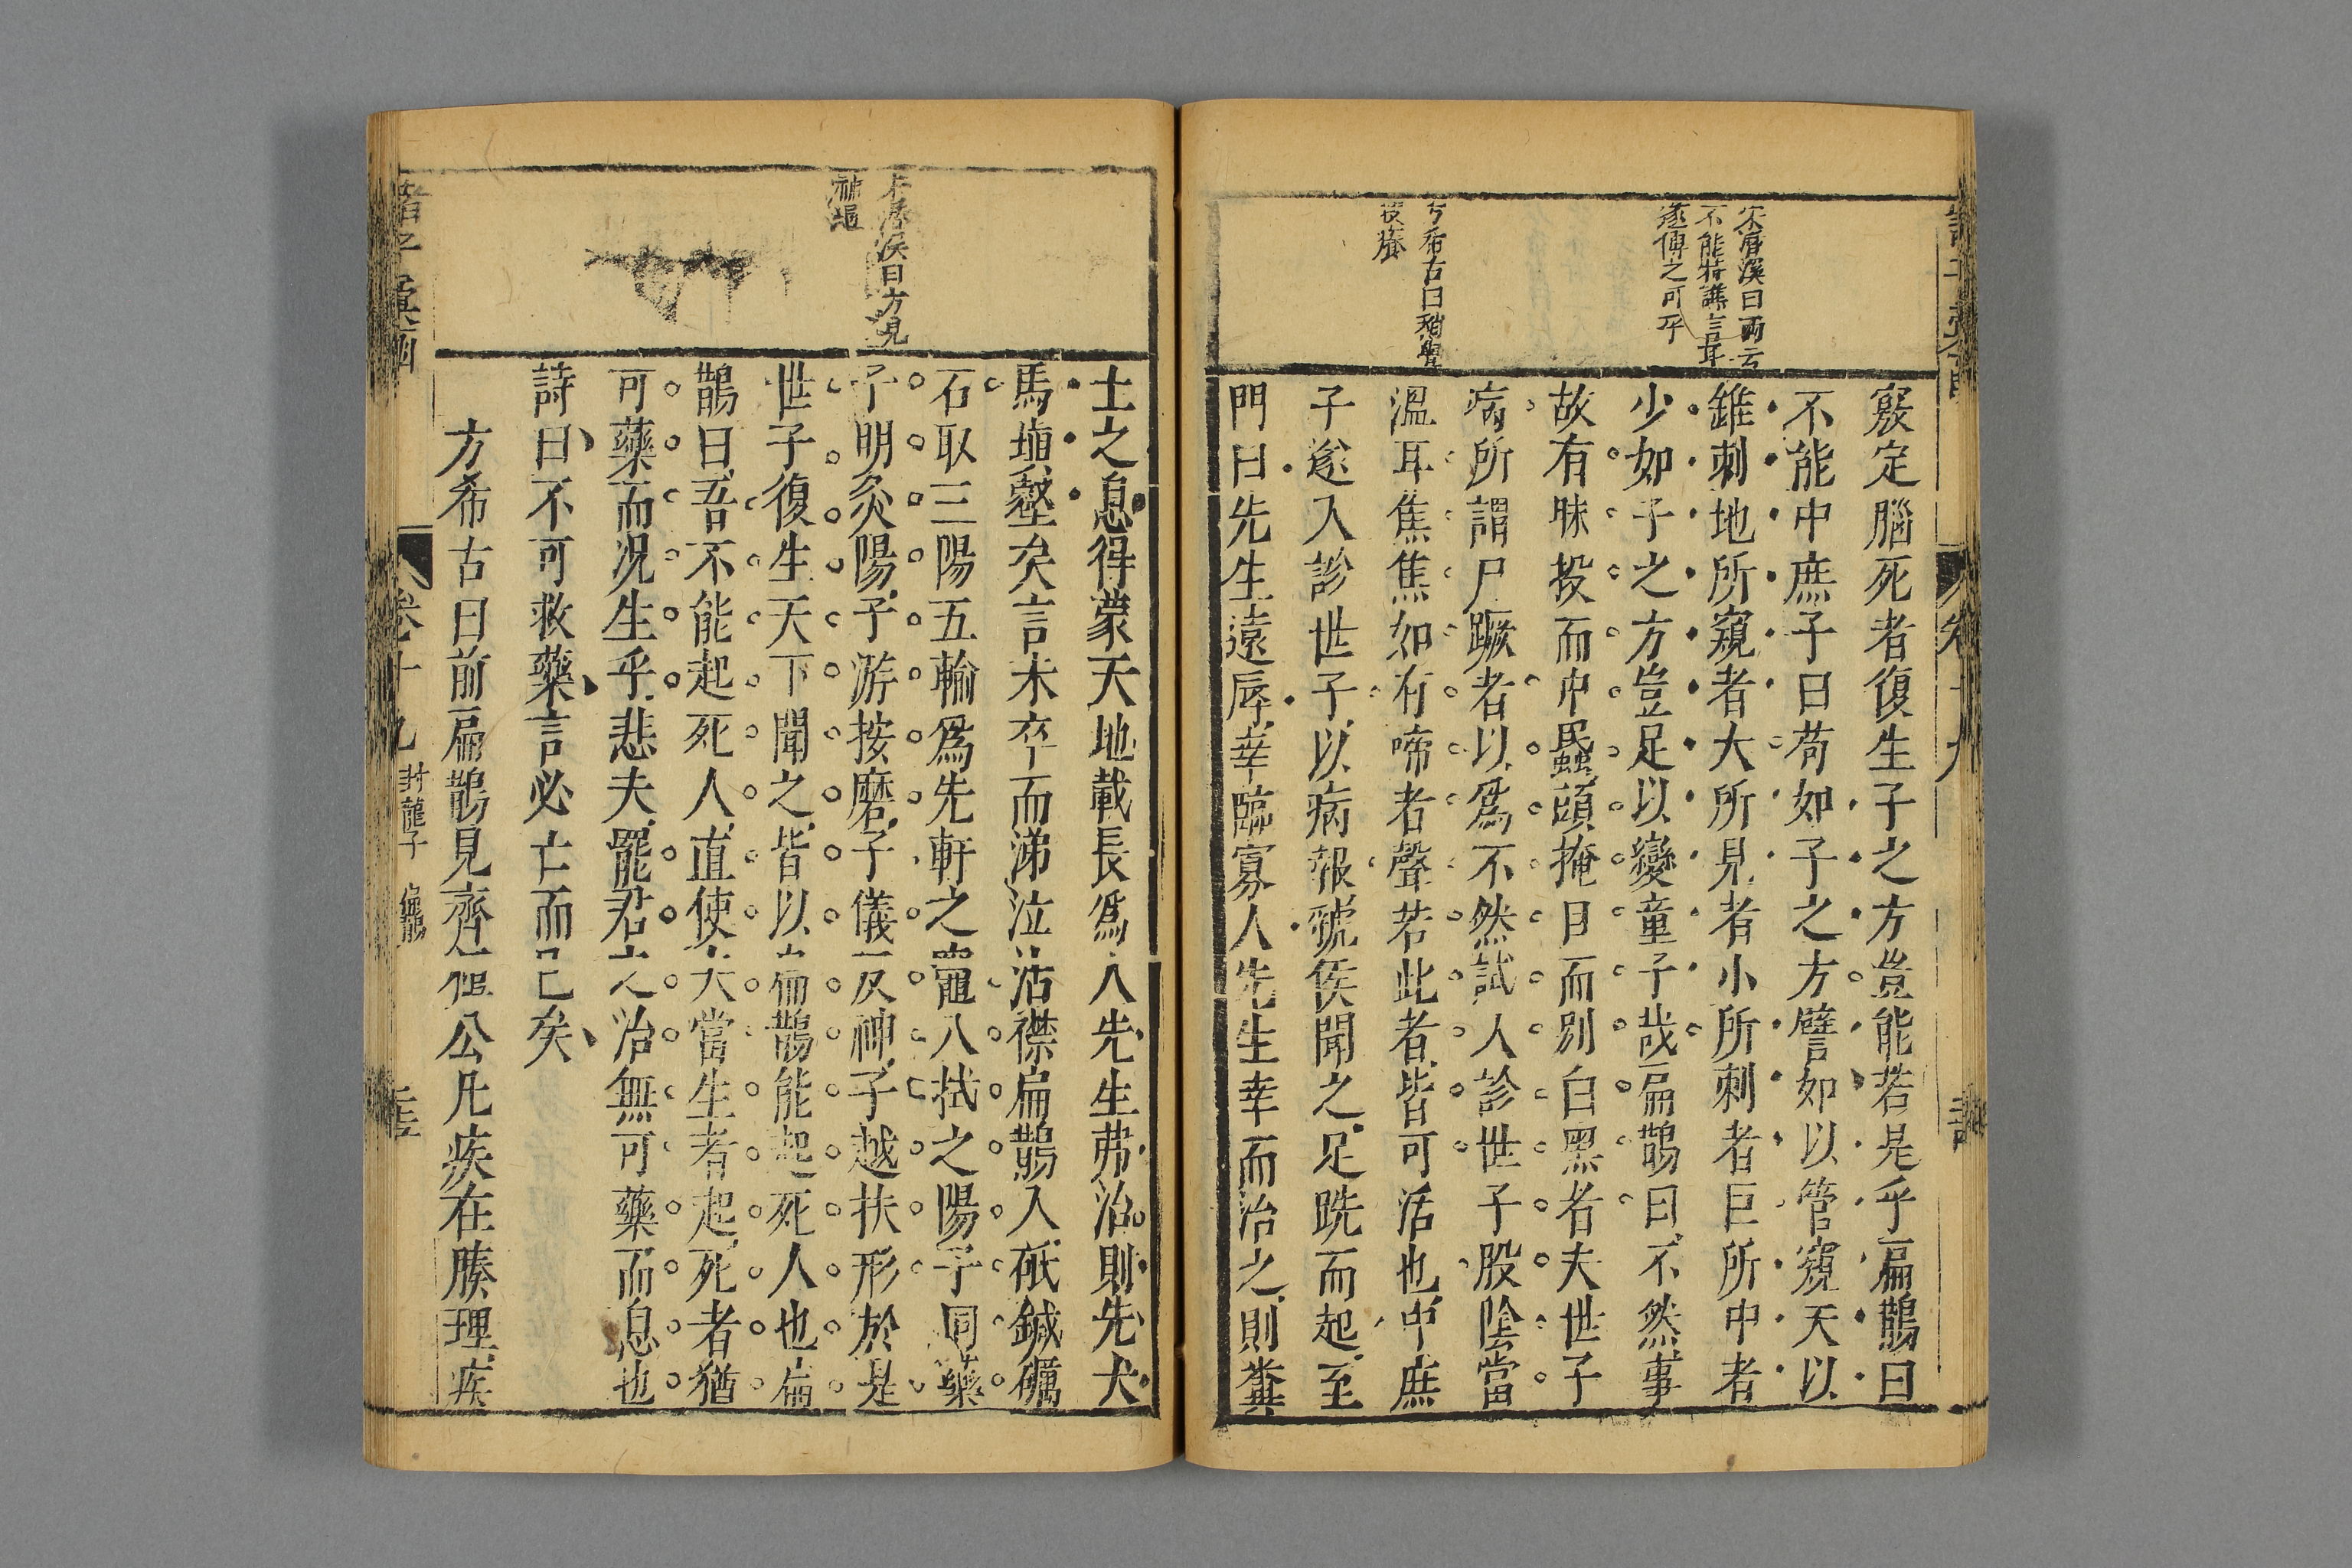 宋潛溪曰兩云
不能特謙言耳
遂傅之可乎
方希古曰稍覺
技癢
竅定腦死者復生子之方豈能若是乎扁鵲曰
不能中庶子曰苟如子之方譬如以管窺天以
錐刺地所窺者大所見者小所刺者巨所中者
少如子之方豈足以變童子哉扁鵲曰不然事
故有昧投而中蟁頭掩目而別白黑者夫世子
病所謂尸蹶者以爲不然試入診世子股陰當
溫耳焦焦如有啼者聲若此者皆可活也中庶
子遂入診世子以病報虢侯聞之足跣而起至
門曰先生遠辱幸臨寡人先生幸而治之則糞
土之息得蒙天地載長爲人先生弗治則先犬
馬塡壑矣言未卒而涕泣沾襟扁鵲入砥鍼礪
石取三陽五輸爲先軒之竈八拭之陽子同藥
子明灸陽子游按磨子儀反神子越扶形於是
世子復生天下聞之皆以扁鵲能起死人也扁
鵲曰吾不能起死人直使夫當生者起死者猶
可藥而況生乎悲夫罷君之治無可藥而息也
詩曰不可救藥言必亡而已矣
方希古曰前扁鵲見齊桓公凡疾在腠理疾
曰方見
神
卷十九
封龍子